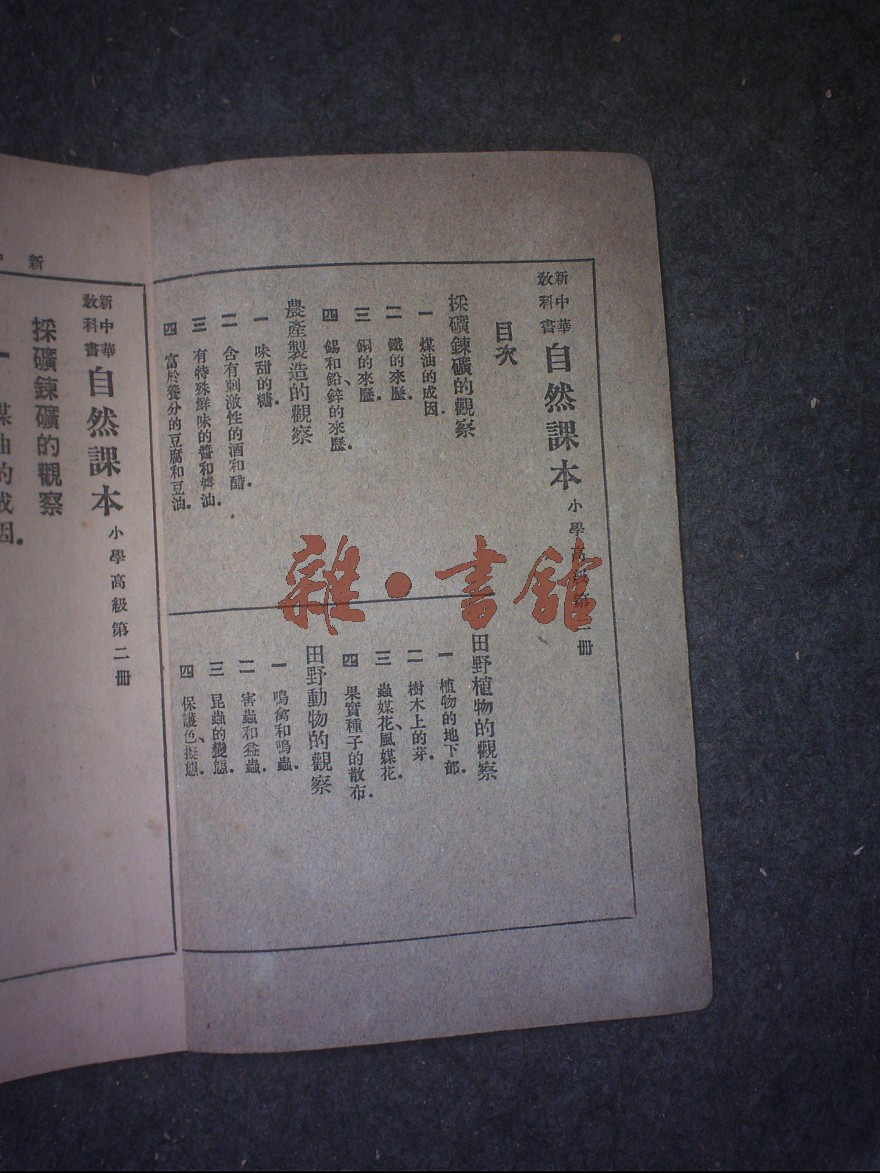 新中華
教科書
自然課本
小學高級第二冊
目次
採礦鍊礦的觀察
一 煤油的成因.
二 鐵的來歷.
三 銅的來歷.
四 錫和鉛、鋅的來歷.
農產製造的觀察
一 味甜的糖.
二 含有刺激性的酒和醋.
三 有特殊鮮味的醬和醬油.
四 富於養分的豆腐和豆油.
田野植物的觀察
一 植物的地下部.
二 樹木上的芽.
三 蟲媒花、風媒花.
四 果實種子的散布.
田野動物的觀察
一 鳴禽和鳴蟲.
二 害蟲和益蟲.
三 昆蟲的變態.
四 保護色、擬態.
雜·書館
新
新中華
教科書
自然課本
小學高級第二冊
採礦鍊礦的觀察
一 煤油的成因.